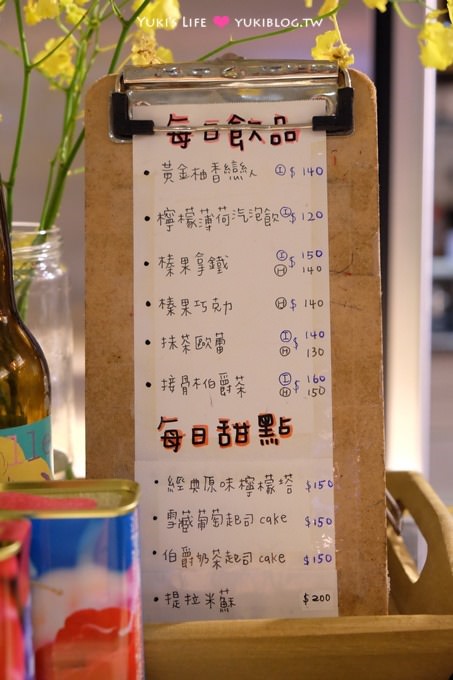 YUKI'S LIFE ♥ YUKIBLOG.TW
每日飲品
• 黃金柚香戀人 Ⓘ $ 140
• 檸檬薄荷汽泡飲 Ⓘ $ 120
• 榛果拿鐵 Ⓘ $ 150
Ⓗ 140
• 榛果巧克力 Ⓗ $ 140
• 抹茶歐蕾 Ⓘ $ 140
Ⓗ 130
• 接骨木伯爵茶 Ⓘ $ 160
Ⓗ 150
每日甜點
• 經典原味檸檬塔 $150
• 雪藏葡萄起司 cake $150
• 伯爵奶茶起司 cake $150
• 提拉米蘇 $200